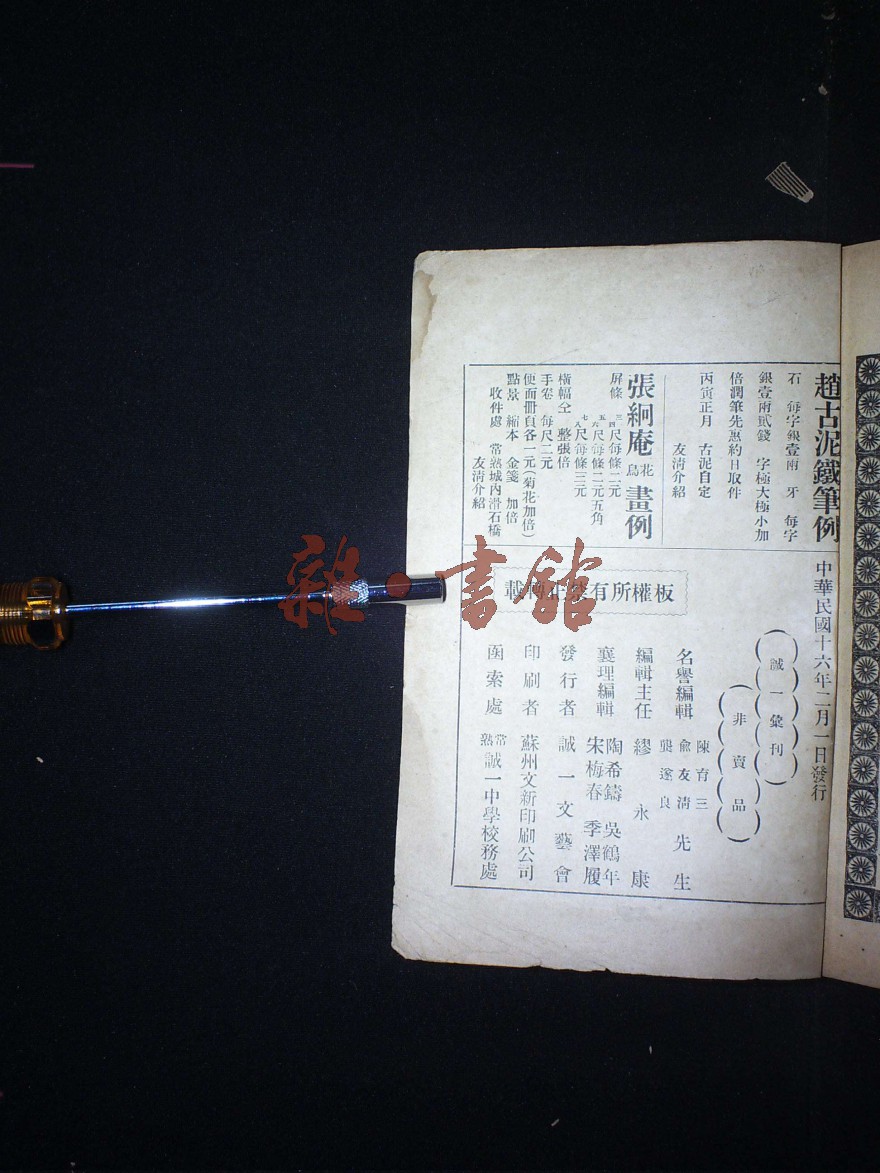 趙古泥鐵筆例
石 每字銀壹兩 牙 每字
銀壹兩貳錢 字極大極小加
倍潤筆先惠約日取件
丙寅正月 古泥自定
友淸介紹
張絅庵花鳥畫例
屏條 三四尺每條二元
五六尺每條二元五角
七八尺每條三元
橫幅仝 整張倍
手卷 每尺二元
便面冊頁各一元(菊花加倍)
點景 縮本 金箋 加倍
收件處 常熟城內滑石橋
友淸介紹
中華民國十六年二月一日發行
誠一彙刊
非賣品
板權所有禁止轉載
名譽編輯 陳育三 俞友淸 龔遂良 先生
編輯主任 繆永康
襄理編輯 陶希鑄 吳鶴年 宋梅春 季澤履
發行者 誠一文藝會
印刷者 蘇州文新印刷公司
函索處 常熟誠一中學校務處
雜·書館